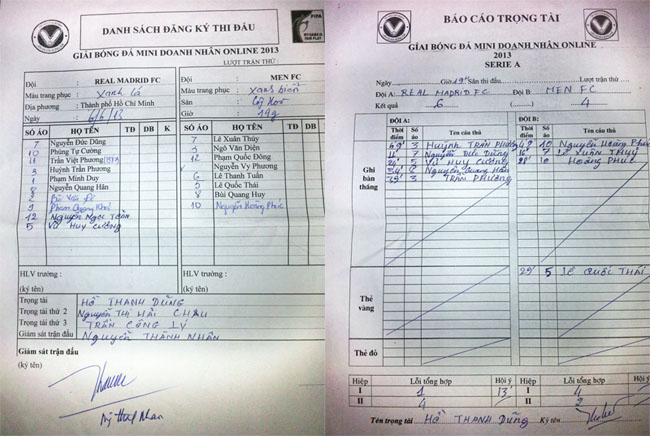 DANH SÁCH ĐĂNG KÝ THI ĐẤU
FIFA
GIẢI BÓNG ĐÁ MINI DOANH NHÂN ONLINE 2013
LƯỢT TRẬN THỨ
Đội : REAL MADRID FC
Màu trang phục : Xanh lá
Địa phương : Thành phố Hồ Chí Minh
Ngày : 6/6/13
Đội : MEN FC
Màu trang phục : xanh biển
Sân :
Giờ : 19g
SỐ ÁO HỌ TÊN TĐ DB K
7 Nguyễn Đức Dũng
10 Phùng Tự Cường
11 Trần Việt Phương
3 Huỳnh Trần Phương
1 Phạm Minh Duy
8 Nguyễn Quang Hân
2
9 Phạm Quang Khải
12 Nguyễn Ngọc Toàn
5 Vũ Huy Cường
SỐ ÁO HỌ TÊN TĐ DB
7 Lê Xuân Thủy
9 Ngô Văn Diện
12 Phạm Quốc Đông
Nguyễn Vy Phương
6 Lê Thanh Tuấn
5 Lê Quốc Thái
8 Bùi Quang Huy
10 Nguyễn Hoàng Phúc
HLV trưởng :
(ký tên)
HLV trưởng :
(ký tên)
Trọng tài HỒ THANH DŨNG
Trọng tài thứ 2 NGUYỄN THỊ HẢI CHÂU
Trọng tài thứ 3 TRẦN CÔNG LÝ
Giám sát trận đấu NGUYỄN THÀNH NHÂN
Giám sát trận đấu
(ký tên)
BÁO CÁO TRỌNG TÀI
GIẢI BÓNG ĐÁ MINI DOANH NHÂN ONLINE
2013
SERIE A
Ngày Giờ 19g Sân thi đấu Lượt trận thứ
Đội A: REAL MADRID FC Đội B: MEN FC
Kết quả 6 4
ĐỘI A:
Thời điểm Số áo Tên cầu thủ
Ghi bàn thắng
3 Huỳnh Trần Phương
7 Nguyễn Đức Dũng
5 Vũ Huy Cường
8 Nguyễn Quang Hân
3 TRẦN PHƯƠNG
ĐỘI B:
Thời điểm Số áo Tên cầu thủ
10 Nguyễn Hoàng Phúc
7 LÊ XUÂN THỦY
10 Hoàng Phúc
Thẻ vàng
29' 5 LÊ QUỐC THÁI
Thẻ đỏ
Hiệp Lỗi tổng hợp Hội ý Hiệp Lỗi tổng hợp Hội ý
I 1 13' I 4
II 4 II 2
Tên trọng tài HỒ THANH DŨNG Ký tên